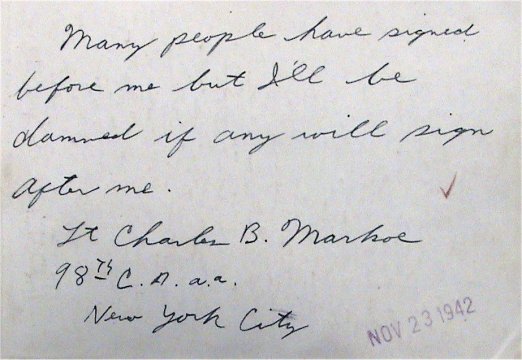 Many people have signed
before me but I'll be
damned if any will sign
after me.
Lt Charles B. Markoe
98th C.A. a.a.
New York City
NOV 23 1942